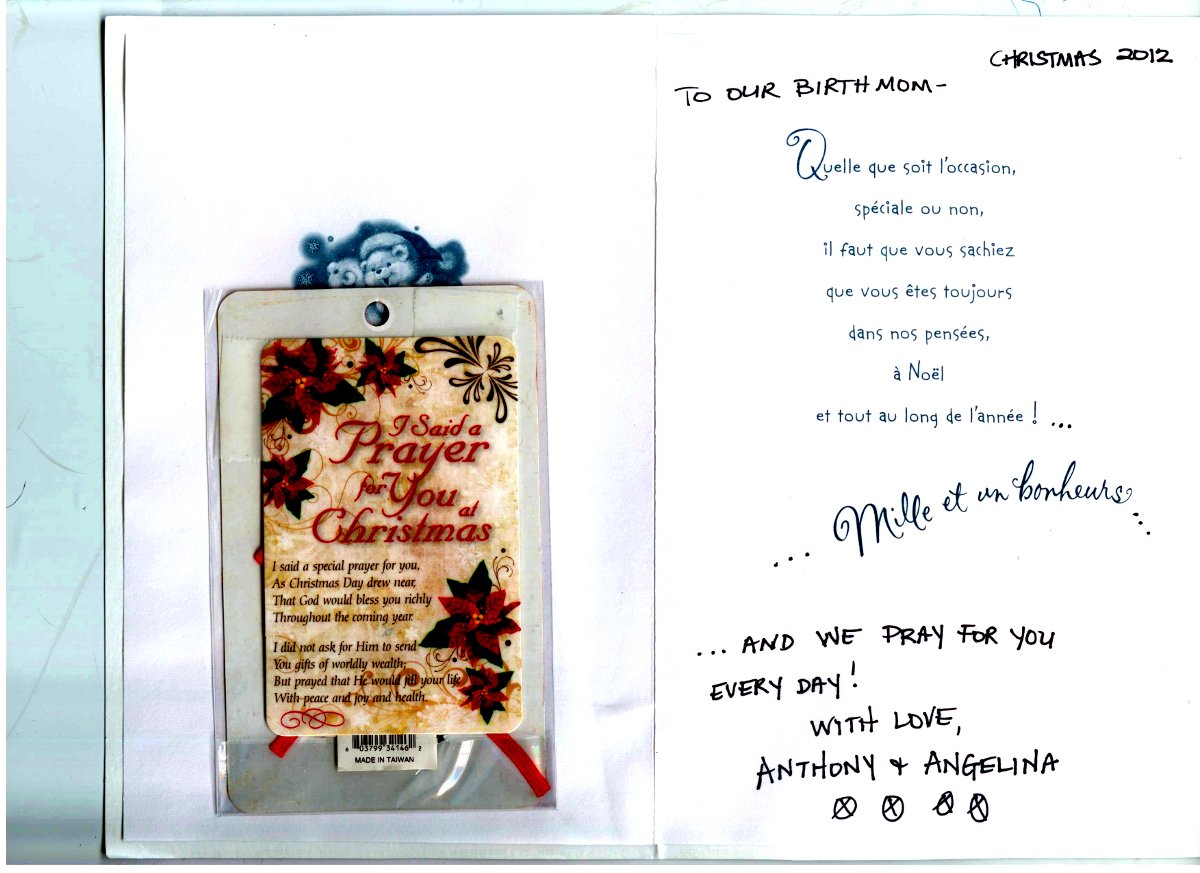 I Said a
Prayer
for You at
Christmas
I said a special prayer for you,
As Christmas Day drew near,
That God would bless you richly
Throughout the coming year.
I did not ask for Him to send
You gifts of worldly wealth;
But prayed that He would fill your life
With peace and joy and health.
6 03799 34146 2
MADE IN TAIWAN
CHRISTMAS 2012
TO OUR BIRTHMOM-
Quelle que soit l'occasion,
spéciale ou non,
il faut que vous sachiez
que vous êtes toujours
dans nos pensées,
à Noël
et tout au long de l'année ! ...
... Mille et un bonheurs ...
... AND WE PRAY FOR YOU
EVERY DAY!
WITH LOVE,
ANTHONY & ANGELINA